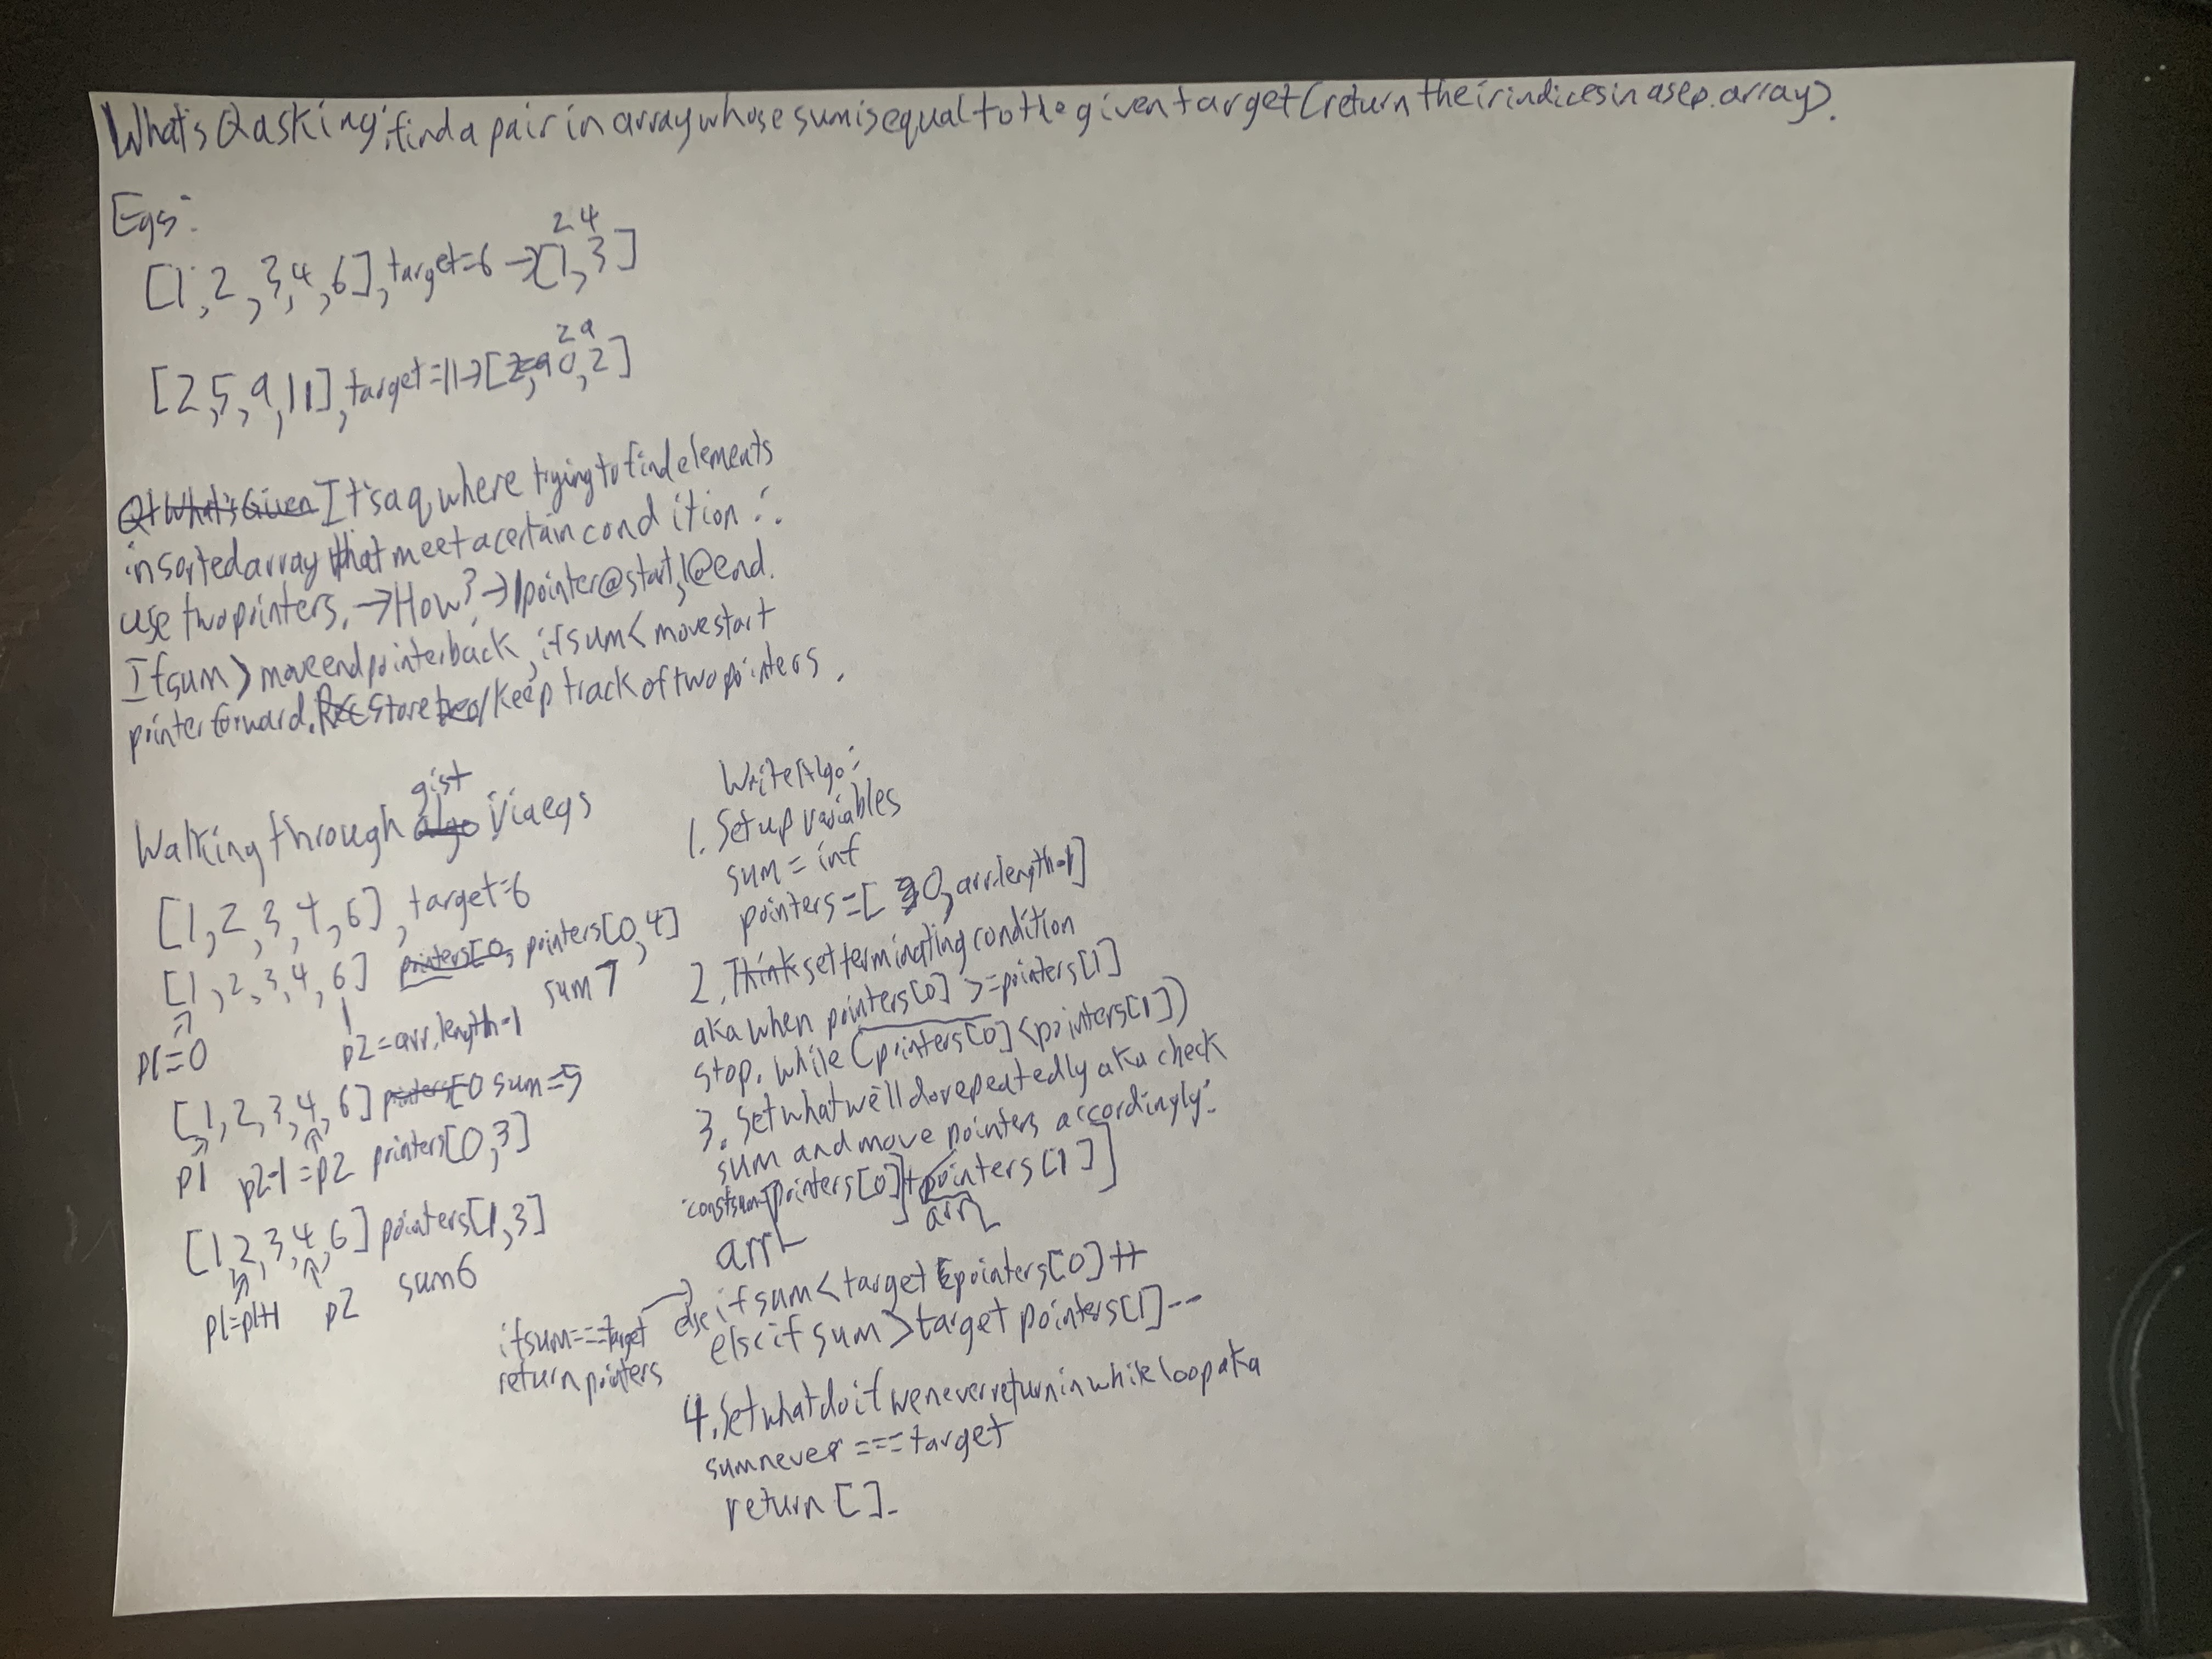 What's Q asking: find a pair in array whose sum is equal to the given target (return their indices in a sep. array).
Egs:
2 4
[1, 2, 3, 4, 6], target=6 → [1, 3]
2 9
[2, 5, 9, 11], target=11 → [2,9 0, 2]
Q+What's Given It's a q. where trying to find elements
in sorted array that meet a certain condition ∴
use two pointers. → How? → 1 pointer @ start, 1 @ end.
If sum > move end pointer back, if sum < move start
pointer forward. Store /keep track of two pointers.
gist
Walking through algo via egs
[1, 2, 3, 4, 6], target=6
[1, 2, 3, 4, 6] pointers[0, pointers[0, 4]
p1=0 p2=arr.length-1 sum 7
[1, 2, 3, 4, 6] pointers[0 sum=5
p1 p2-1=p2 pointers[0, 3]
[1, 2, 3, 4, 6] pointers[1, 3]
p1=p1+1 p2 sum 6
Write Algo:
1. Set up variables
sum = inf
pointers = [ 0, arr.length-1]
2. Think set terminating condition
aka when pointers[0] >= pointers[1]
stop. while (pointers[0] < pointers[1])
3. Set what we'll do repeatedly aka check
sum and move pointers accordingly:
const sum = pointers[0]] + pointers[1]]
arr[ arr[
if sum === target
return pointers
else if sum < target pointers[0]++
else if sum > target pointers[1]--
4. Set what do if we never return in while loop aka
sum never === target
return [].